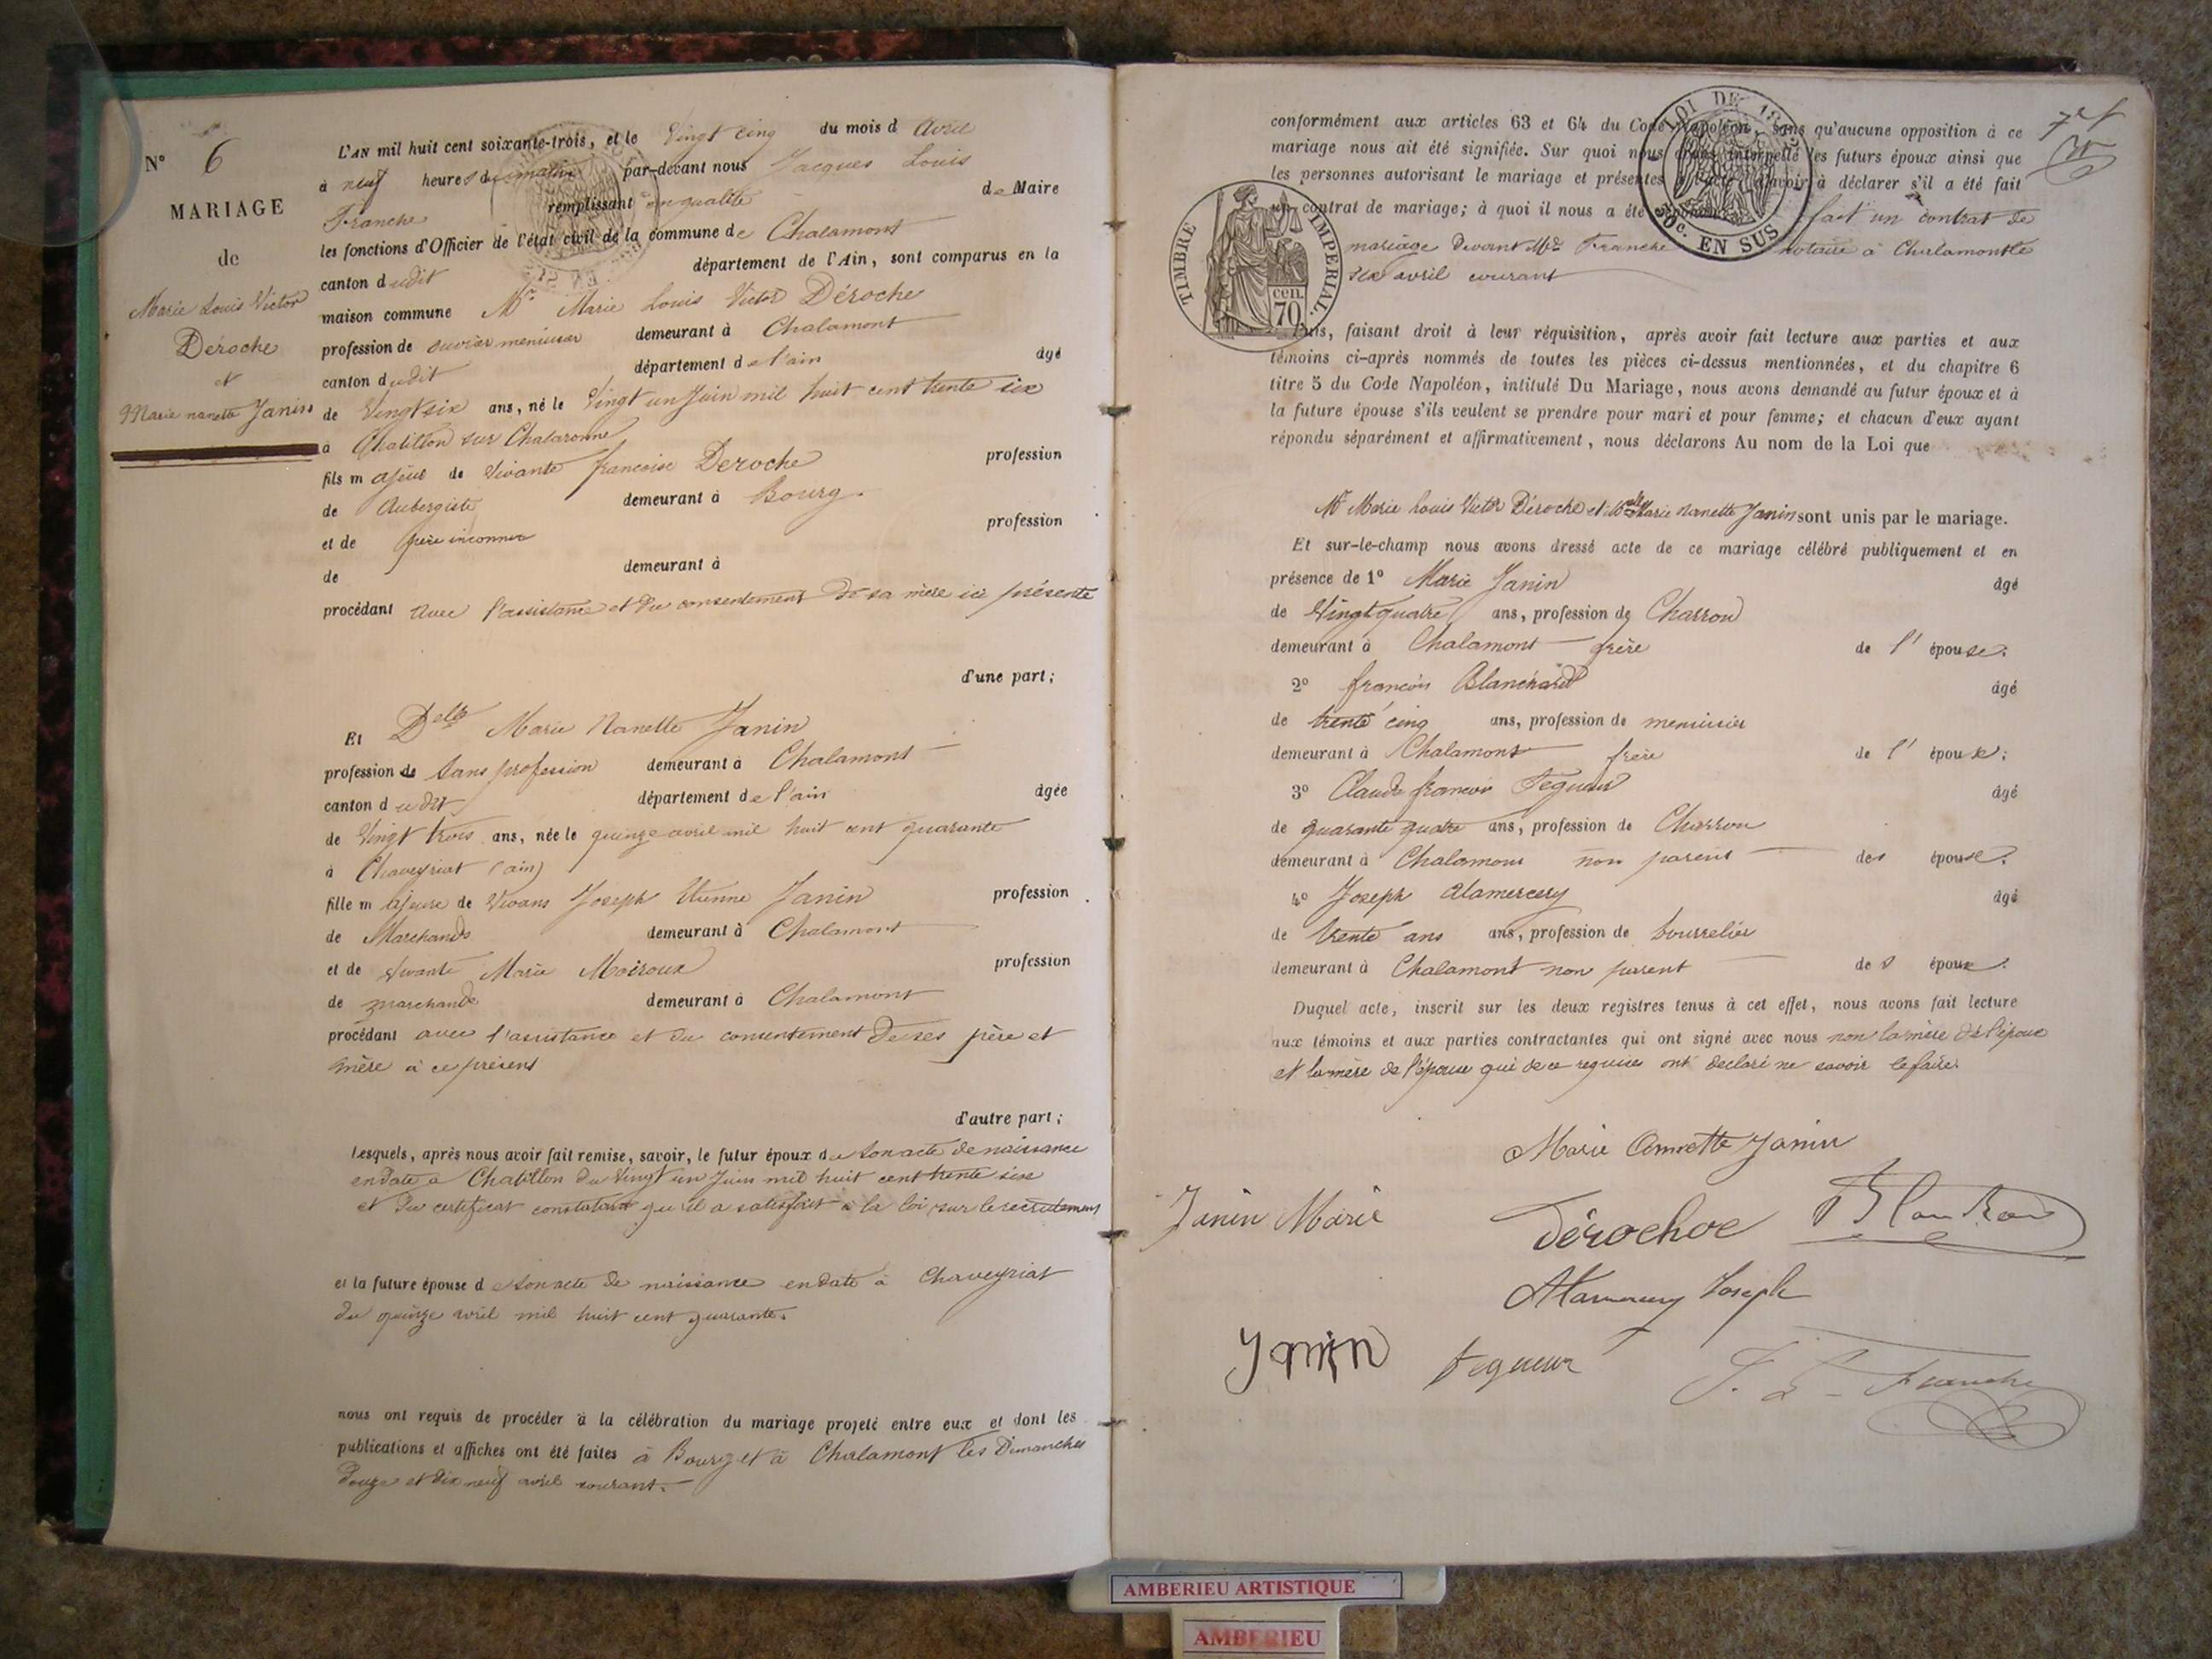 N° 6
MARIAGE
de
Marie Louis Victor
Déroche
et
Marie nanette Janin
L'AN mil huit cent soixante-trois, et le Vingt cinq du mois d Avril
à neuf heures du matin par-devant nous Jacques Louis
Franche remplissant en qualité de Maire
les fonctions d'Officier de l'état civil de la commune de Chalamont
canton dudit département de l'Ain, sont comparus en la
maison commune Mr Marie Louis Victor Déroche
profession de ouvrier menuisier demeurant à Chalamont
canton dudit département de l'ain âgé
de Vingt six ans, né le Vingt un Juin mil huit cent trente six
à Chatillon sur Chalaronne
fils majeur de Vivante francoise Deroche profession
de Aubergiste demeurant à Bourg.
et de père inconnu profession
de demeurant à
procédant avec l'assistance et du consentement de sa mère ici présente
d'une part;
Et Delle Marie Nanette Janin
profession de Sans profession demeurant à Chalamont
canton dudit département de l'ain âgée
de Vingt trois ans, née le quinze avril mil huit cent quarante
à Chaveyriat (ain)
fille majeure de Vivans Joseph Etienne Janin profession
de Marchands demeurant à Chalamont
et de vivante Marie Moiroux profession
de marchande demeurant à Chalamont
procédant avec l'assistance et du consentement de ses père et
mère à ce présens
d'autre part;
Lesquels, après nous avoir fait remise, savoir, le futur époux de son acte de naissance
en date a Chatillon du Vingt un Juin mil huit cent trente six
et du certificat constatant qu'il a satisfait à la loi sur le recrutement
et la future épouse de son acte de naissance en date à Chaveyriat
du quinze avril mil huit cent quarante.
nous ont requis de procéder à la célébration du mariage projeté entre eux et dont les
publications et affiches ont été faites à Bourg et à Chalamont les Dimanches
douze et dix neuf avril courant.
conformément aux articles 63 et 64 du Code Napoléon, sans qu'aucune opposition à ce
mariage nous ait été signifiée. Sur quoi nous avons interpellé les futurs époux ainsi que
les personnes autorisant le mariage et présentes à l'acte d'avoir à déclarer s'il a été fait
un contrat de mariage; à quoi il nous a été répondu fait un contrat de
mariage devant Me Franche notaire à Chalamont le
six avril courant
LOI DE 18
50c. EN SUS
TIMBRE IMPERIAL.
cen. 70
Puis, faisant droit à leur réquisition, après avoir fait lecture aux parties et aux
témoins ci-après nommés de toutes les pièces ci-dessus mentionnées, et du chapitre 6
titre 5 du Code Napoléon, intitulé Du Mariage, nous avons demandé au futur époux et à
la future épouse s'ils veulent se prendre pour mari et pour femme; et chacun d'eux ayant
répondu séparément et affirmativement, nous déclarons Au nom de la Loi que
Mr Marie Louis Victor Déroche et Melle Marie nanette Janin sont unis par le mariage.
Et sur-le-champ nous avons dressé acte de ce mariage célébré publiquement et en
présence de 1° Marie Janin âgé
de Vingt quatre ans, profession de Charron
demeurant à Chalamont frère de l'épouse.
2° francois Blanchard âgé
de trente cinq ans, profession de menuisier
demeurant à Chalamont frère de l'époux;
3° Claude francois Tegueur âgé
de quarante quatre ans, profession de Charron
demeurant à Chalamont non parent des épouse.
4° Joseph Alamercery âgé
de trente ans ans, profession de bourrelier
demeurant à Chalamont non parent des époux.
Duquel acte, inscrit sur les deux registres tenus à cet effet, nous avons fait lecture
aux témoins et aux parties contractantes qui ont signé avec nous non la mère de l'époux
et la mère de l'épouse qui de ce requises ont déclaré ne savoir le faire.
Janin Marie
Dérochoe
Janin
Joseph
tegueur
J. L. Franche
AMBERIEU ARTISTIQUE
AMBERIEU